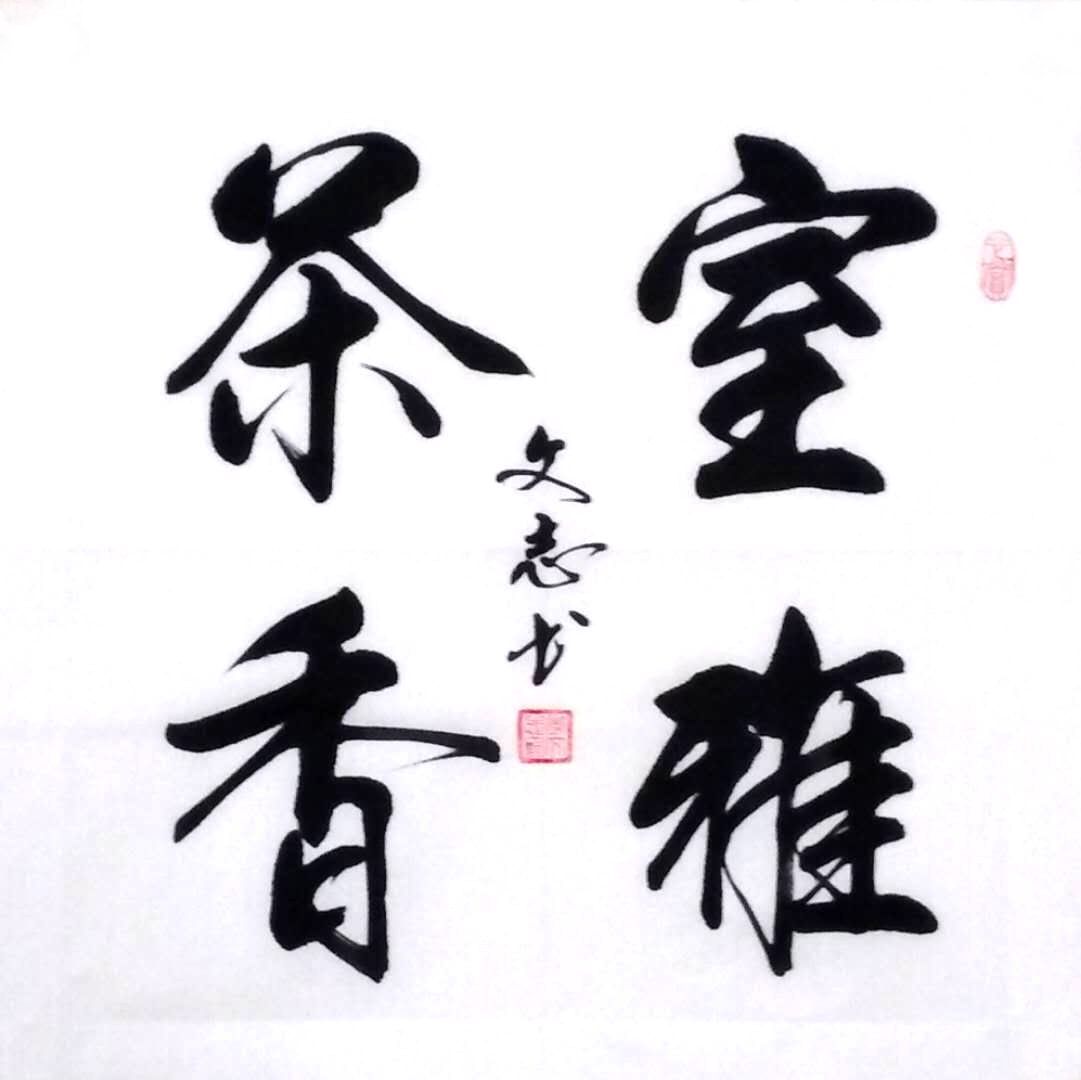 室雅
茶香
文志书